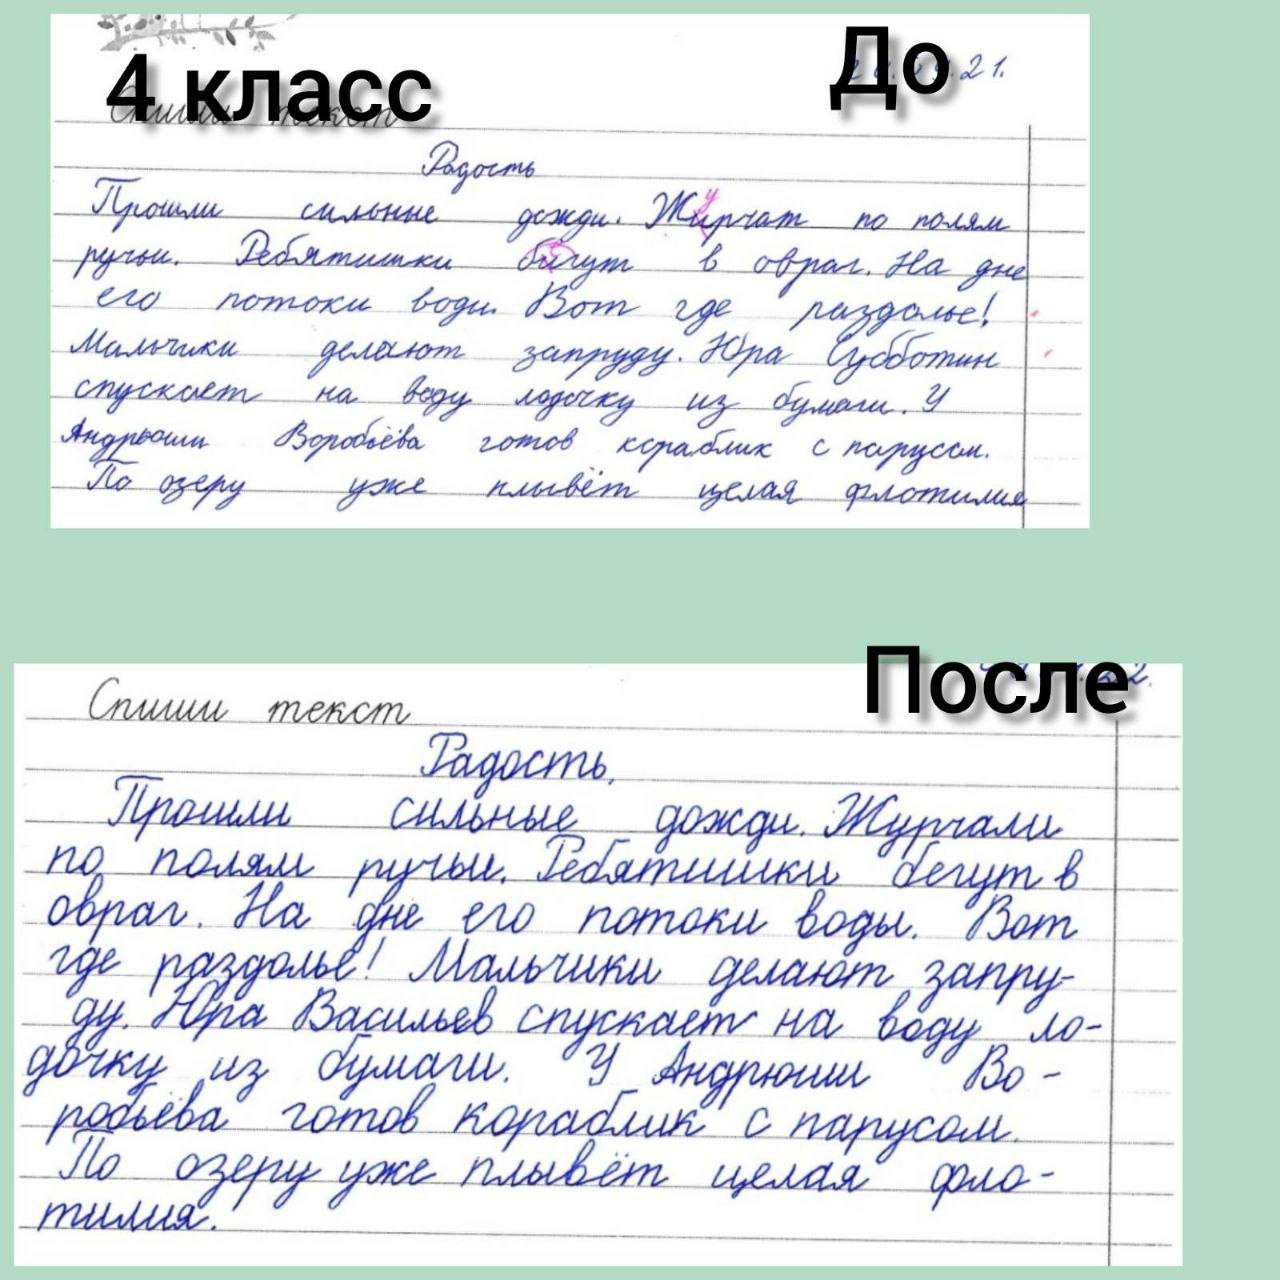 4 класс
До
21.
Спиши текст
Радость
Прошли сильные дожди. Журчат по полям
ручьи. Ребятишки бегут в овраг. На дне
его потоки воды. Вот где раздолье!
Мальчики делают запруду. Юра Субботин
спускает на воду лодочку из бумаги. У
Андрюши Воробьёва готов кораблик с парусом.
По озеру уже плывёт целая флотилия
После
Спиши текст
Радость.
Прошли сильные дожди. Журчали
по полям ручьи. Ребятишки бегут в
овраг. На дне его потоки воды. Вот
где раздолье! Мальчики делают запру-
ду. Юра Васильев спускает на воду ло-
дочку из бумаги. У Андрюши Во-
робьёва готов кораблик с парусом.
По озеру уже плывёт целая фло-
тилия.